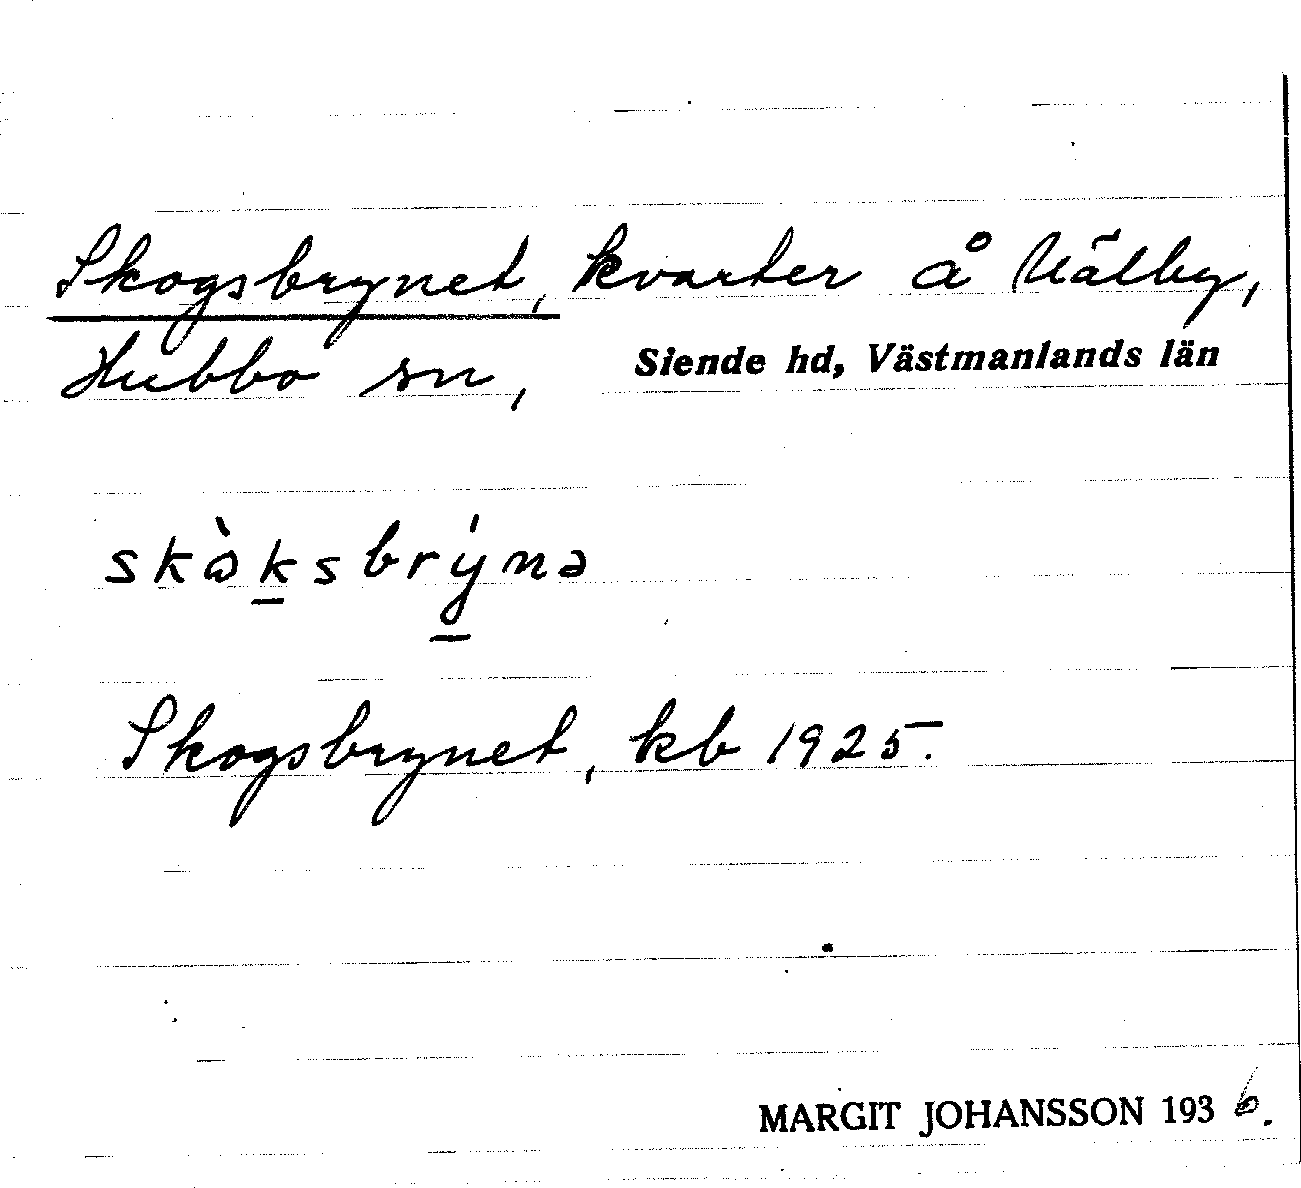 Skogsbrynet, kvarter å Hälby,
Hubbo sn, Siende hd, Västmanlands län
skò̀ksbrýnə
Skogsbrynet, kb 1925.
MARGIT JOHANSSON 1936.